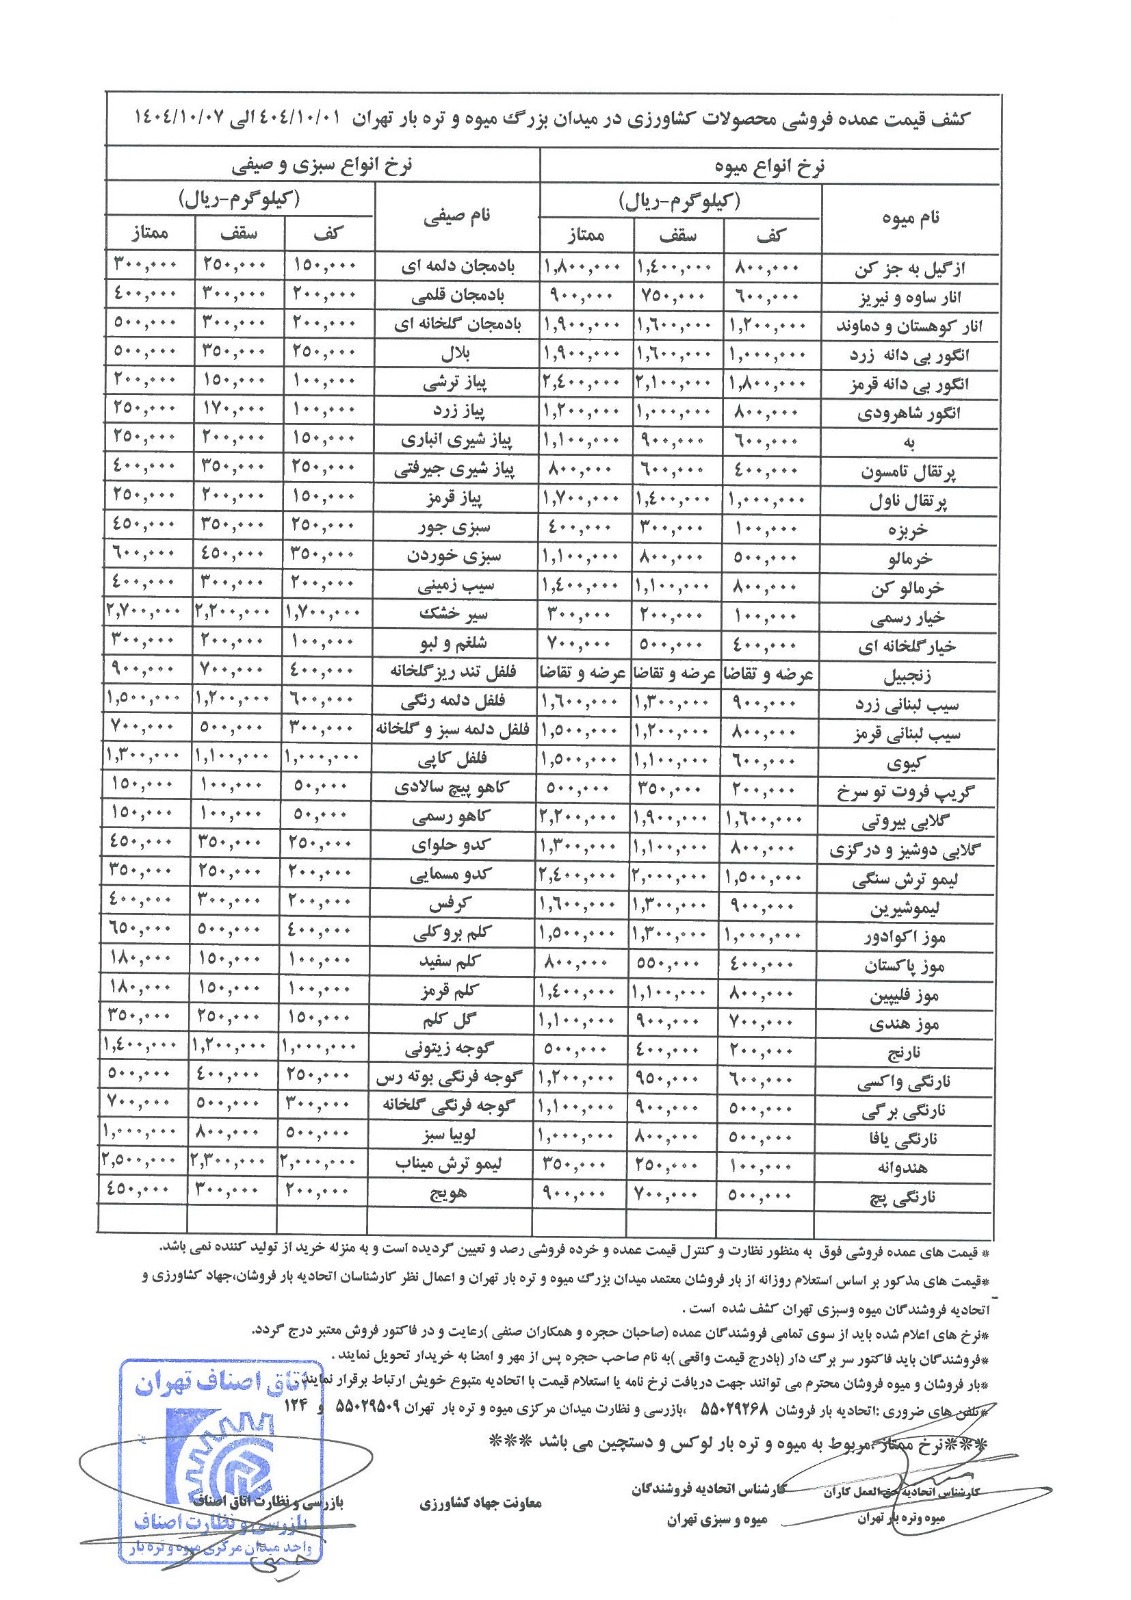 کشف قیمت عمده فروشی محصولات کشاورزی در میدان بزرگ میوه و تره بار تهران ۴۰۴/۱۰/۰۱ الی ۱۴۰۴/۱۰/۰۷
نرخ انواع میوه نرخ انواع سبزی و صیفی
نام میوه (کیلوگرم-ریال) نام صیفی (کیلوگرم-ریال)
کف سقف ممتاز کف سقف ممتاز
ازگیل به جز کن ۸۰۰,۰۰۰ ۱,۴۰۰,۰۰۰ ۱,۸۰۰,۰۰۰ بادمجان دلمه ای ۱۵۰,۰۰۰ ۲۵۰,۰۰۰ ۳۰۰,۰۰۰
انار ساوه و نیریز ۶۰۰,۰۰۰ ۷۵۰,۰۰۰ ۹۰۰,۰۰۰ بادمجان قلمی ۲۰۰,۰۰۰ ۳۰۰,۰۰۰ ۴۰۰,۰۰۰
انار کوهستان و دماوند ۱,۲۰۰,۰۰۰ ۱,۶۰۰,۰۰۰ ۱,۹۰۰,۰۰۰ بادمجان گلخانه ای ۲۰۰,۰۰۰ ۳۰۰,۰۰۰ ۵۰۰,۰۰۰
انگور بی دانه زرد ۱,۰۰۰,۰۰۰ ۱,۶۰۰,۰۰۰ ۱,۹۰۰,۰۰۰ بلال ۲۵۰,۰۰۰ ۳۵۰,۰۰۰ ۵۰۰,۰۰۰
انگور بی دانه قرمز ۱,۸۰۰,۰۰۰ ۲,۱۰۰,۰۰۰ ۲,۴۰۰,۰۰۰ پیاز ترشی ۱۰۰,۰۰۰ ۱۵۰,۰۰۰ ۲۰۰,۰۰۰
انگور شاهرودی ۸۰۰,۰۰۰ ۱,۰۰۰,۰۰۰ ۱,۲۰۰,۰۰۰ پیاز زرد ۱۰۰,۰۰۰ ۱۷۰,۰۰۰ ۲۵۰,۰۰۰
به ۶۰۰,۰۰۰ ۹۰۰,۰۰۰ ۱,۱۰۰,۰۰۰ پیاز شیری انباری ۱۵۰,۰۰۰ ۲۰۰,۰۰۰ ۲۵۰,۰۰۰
پرتقال تامسون ۴۰۰,۰۰۰ ۶۰۰,۰۰۰ ۸۰۰,۰۰۰ پیاز شیری جیرفتی ۲۵۰,۰۰۰ ۳۵۰,۰۰۰ ۴۰۰,۰۰۰
پرتقال ناول ۱,۰۰۰,۰۰۰ ۱,۴۰۰,۰۰۰ ۱,۷۰۰,۰۰۰ پیاز قرمز ۱۵۰,۰۰۰ ۲۰۰,۰۰۰ ۲۵۰,۰۰۰
خربزه ۱۰۰,۰۰۰ ۳۰۰,۰۰۰ ۴۰۰,۰۰۰ سبزی جور ۲۵۰,۰۰۰ ۳۵۰,۰۰۰ ۴۵۰,۰۰۰
خرمالو ۵۰۰,۰۰۰ ۸۰۰,۰۰۰ ۱,۱۰۰,۰۰۰ سبزی خوردن ۳۵۰,۰۰۰ ۴۵۰,۰۰۰ ۶۰۰,۰۰۰
خرمالو کن ۸۰۰,۰۰۰ ۱,۱۰۰,۰۰۰ ۱,۴۰۰,۰۰۰ سیب زمینی ۲۰۰,۰۰۰ ۳۰۰,۰۰۰ ۴۰۰,۰۰۰
خیار رسمی ۱۰۰,۰۰۰ ۲۰۰,۰۰۰ ۳۰۰,۰۰۰ سیر خشک ۱,۷۰۰,۰۰۰ ۲,۲۰۰,۰۰۰ ۲,۷۰۰,۰۰۰
خیارگلخانه ای ۴۰۰,۰۰۰ ۵۰۰,۰۰۰ ۷۰۰,۰۰۰ شلغم و لبو ۱۰۰,۰۰۰ ۲۰۰,۰۰۰ ۳۰۰,۰۰۰
زنجبیل عرضه و تقاضا عرضه و تقاضا عرضه و تقاضا فلفل تند ریزگلخانه ۴۰۰,۰۰۰ ۷۰۰,۰۰۰ ۹۰۰,۰۰۰
سیب لبنانی زرد ۹۰۰,۰۰۰ ۱,۳۰۰,۰۰۰ ۱,۶۰۰,۰۰۰ فلفل دلمه رنگی ۶۰۰,۰۰۰ ۱,۲۰۰,۰۰۰ ۱,۵۰۰,۰۰۰
سیب لبنانی قرمز ۸۰۰,۰۰۰ ۱,۲۰۰,۰۰۰ ۱,۵۰۰,۰۰۰ فلفل دلمه سبز و گلخانه ۳۰۰,۰۰۰ ۵۰۰,۰۰۰ ۷۰۰,۰۰۰
کیوی ۶۰۰,۰۰۰ ۱,۱۰۰,۰۰۰ ۱,۵۰۰,۰۰۰ فلفل کاپی ۱,۰۰۰,۰۰۰ ۱,۱۰۰,۰۰۰ ۱,۳۰۰,۰۰۰
گریپ فروت تو سرخ ۲۰۰,۰۰۰ ۳۵۰,۰۰۰ ۵۰۰,۰۰۰ کاهو پیچ سالادی ۵۰,۰۰۰ ۱۰۰,۰۰۰ ۱۵۰,۰۰۰
گلابی بیروتی ۱,۶۰۰,۰۰۰ ۱,۹۰۰,۰۰۰ ۲,۲۰۰,۰۰۰ کاهو رسمی ۵۰,۰۰۰ ۱۰۰,۰۰۰ ۱۵۰,۰۰۰
گلابی دوشیز و درگزی ۸۰۰,۰۰۰ ۱,۱۰۰,۰۰۰ ۱,۳۰۰,۰۰۰ کدو حلوای ۲۵۰,۰۰۰ ۳۵۰,۰۰۰ ۴۵۰,۰۰۰
لیمو ترش سنگی ۱,۵۰۰,۰۰۰ ۲,۰۰۰,۰۰۰ ۲,۴۰۰,۰۰۰ کدو مسمایی ۲۰۰,۰۰۰ ۲۵۰,۰۰۰ ۳۵۰,۰۰۰
لیموشیرین ۹۰۰,۰۰۰ ۱,۳۰۰,۰۰۰ ۱,۶۰۰,۰۰۰ کرفس ۲۰۰,۰۰۰ ۳۰۰,۰۰۰ ۴۰۰,۰۰۰
موز اکوادور ۱,۰۰۰,۰۰۰ ۱,۳۰۰,۰۰۰ ۱,۵۰۰,۰۰۰ کلم بروکلی ۴۰۰,۰۰۰ ۵۰۰,۰۰۰ ۶۵۰,۰۰۰
موز پاکستان ۴۰۰,۰۰۰ ۵۵۰,۰۰۰ ۸۰۰,۰۰۰ کلم سفید ۱۰۰,۰۰۰ ۱۵۰,۰۰۰ ۱۸۰,۰۰۰
موز فلیپین ۸۰۰,۰۰۰ ۱,۱۰۰,۰۰۰ ۱,۴۰۰,۰۰۰ کلم قرمز ۱۰۰,۰۰۰ ۱۵۰,۰۰۰ ۱۸۰,۰۰۰
موز هندی ۷۰۰,۰۰۰ ۹۰۰,۰۰۰ ۱,۱۰۰,۰۰۰ گل کلم ۱۵۰,۰۰۰ ۲۵۰,۰۰۰ ۳۵۰,۰۰۰
نارنج ۲۰۰,۰۰۰ ۴۰۰,۰۰۰ ۵۰۰,۰۰۰ گوجه زیتونی ۱,۰۰۰,۰۰۰ ۱,۲۰۰,۰۰۰ ۱,۴۰۰,۰۰۰
نارنگی واکسی ۶۰۰,۰۰۰ ۹۵۰,۰۰۰ ۱,۲۰۰,۰۰۰ گوجه فرنگی بوته رس ۲۵۰,۰۰۰ ۴۰۰,۰۰۰ ۵۰۰,۰۰۰
نارنگی برگی ۵۰۰,۰۰۰ ۹۰۰,۰۰۰ ۱,۱۰۰,۰۰۰ گوجه فرنگی گلخانه ۳۰۰,۰۰۰ ۵۰۰,۰۰۰ ۷۰۰,۰۰۰
نارنگی یافا ۵۰۰,۰۰۰ ۸۰۰,۰۰۰ ۱,۰۰۰,۰۰۰ لوبیا سبز ۵۰۰,۰۰۰ ۸۰۰,۰۰۰ ۱,۰۰۰,۰۰۰
هندوانه ۱۰۰,۰۰۰ ۲۵۰,۰۰۰ ۳۵۰,۰۰۰ لیمو ترش میناب ۲,۰۰۰,۰۰۰ ۲,۳۰۰,۰۰۰ ۲,۵۰۰,۰۰۰
نارنگی پچ ۵۰۰,۰۰۰ ۷۰۰,۰۰۰ ۹۰۰,۰۰۰ هویج ۲۰۰,۰۰۰ ۳۰۰,۰۰۰ ۴۵۰,۰۰۰
* قیمت های عمده فروشی فوق به منظور نظارت و کنترل قیمت عمده و خرده فروشی رصد و تعیین گردیده است و به منزله خرید از تولید کننده نمی باشد.
*قیمت های مذکور بر اساس استعلام روزانه از بار فروشان معتمد میدان بزرگ میوه و تره بار تهران و اعمال نظر کارشناسان اتحادیه بار فروشان،جهاد کشاورزی و
اتحادیه فروشندگان میوه وسبزی تهران کشف شده است .
*نرخ های اعلام شده باید از سوی تمامی فروشندگان عمده (صاحبان حجره و همکاران صنفی )رعایت و در فاکتور فروش معتبر درج گردد.
*فروشندگان باید فاکتور سر برگ دار (بادرج قیمت واقعی )به نام صاحب حجره پس از مهر و امضا به خریدار تحویل نمایند .
*بار فروشان و میوه فروشان محترم می توانند جهت دریافت نرخ نامه یا استعلام قیمت با اتحادیه متبوع خویش ارتباط برقرار نمایند.
*تلفن های ضروری :اتحادیه بار فروشان ۵۵۰۲۹۲۶۸ ،بازرسی و نظارت میدان مرکزی میوه و تره بار تهران ۵۵۰۲۹۵۰۹ و ۱۲۴
***نرخ ممتاز مربوط به میوه و تره بار لوکس و دستچین می باشد ***
کارشناس اتحادیه حق العمل کاران کارشناس اتحادیه فروشندگان معاونت جهاد کشاورزی بازرسی و نظارت اتاق اصناف
میوه وتره بار تهران میوه و سبزی تهران
اتاق اصناف تهران
بازرسی و نظارت اصناف
واحد میدان مرکزی میوه و تره بار